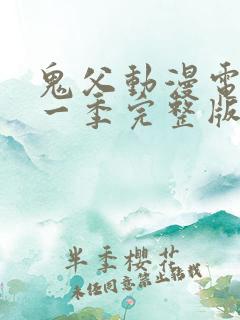 鬼父動漫電
一季完整版
半季櫻花
未经同意禁止转载